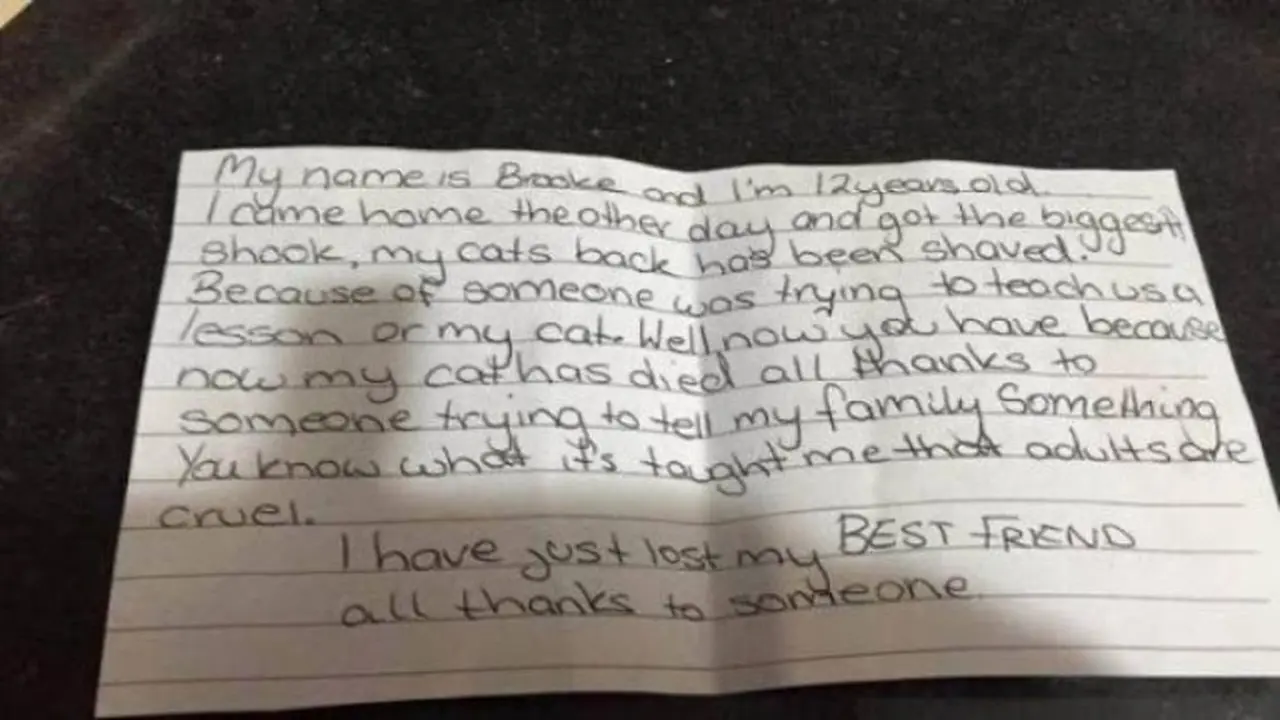 My name is Brooke and I'm 12 years old.
I came home the other day and got the biggest
shook, my cats back has been shaved.
Because of someone was trying to teach us a
lesson or my cat. Well now you have because
now my cat has died all thanks to
someone trying to tell my family Something
You know what it's taught me that adults are
cruel.
I have just lost my BEST FRIEND
all thanks to someone.